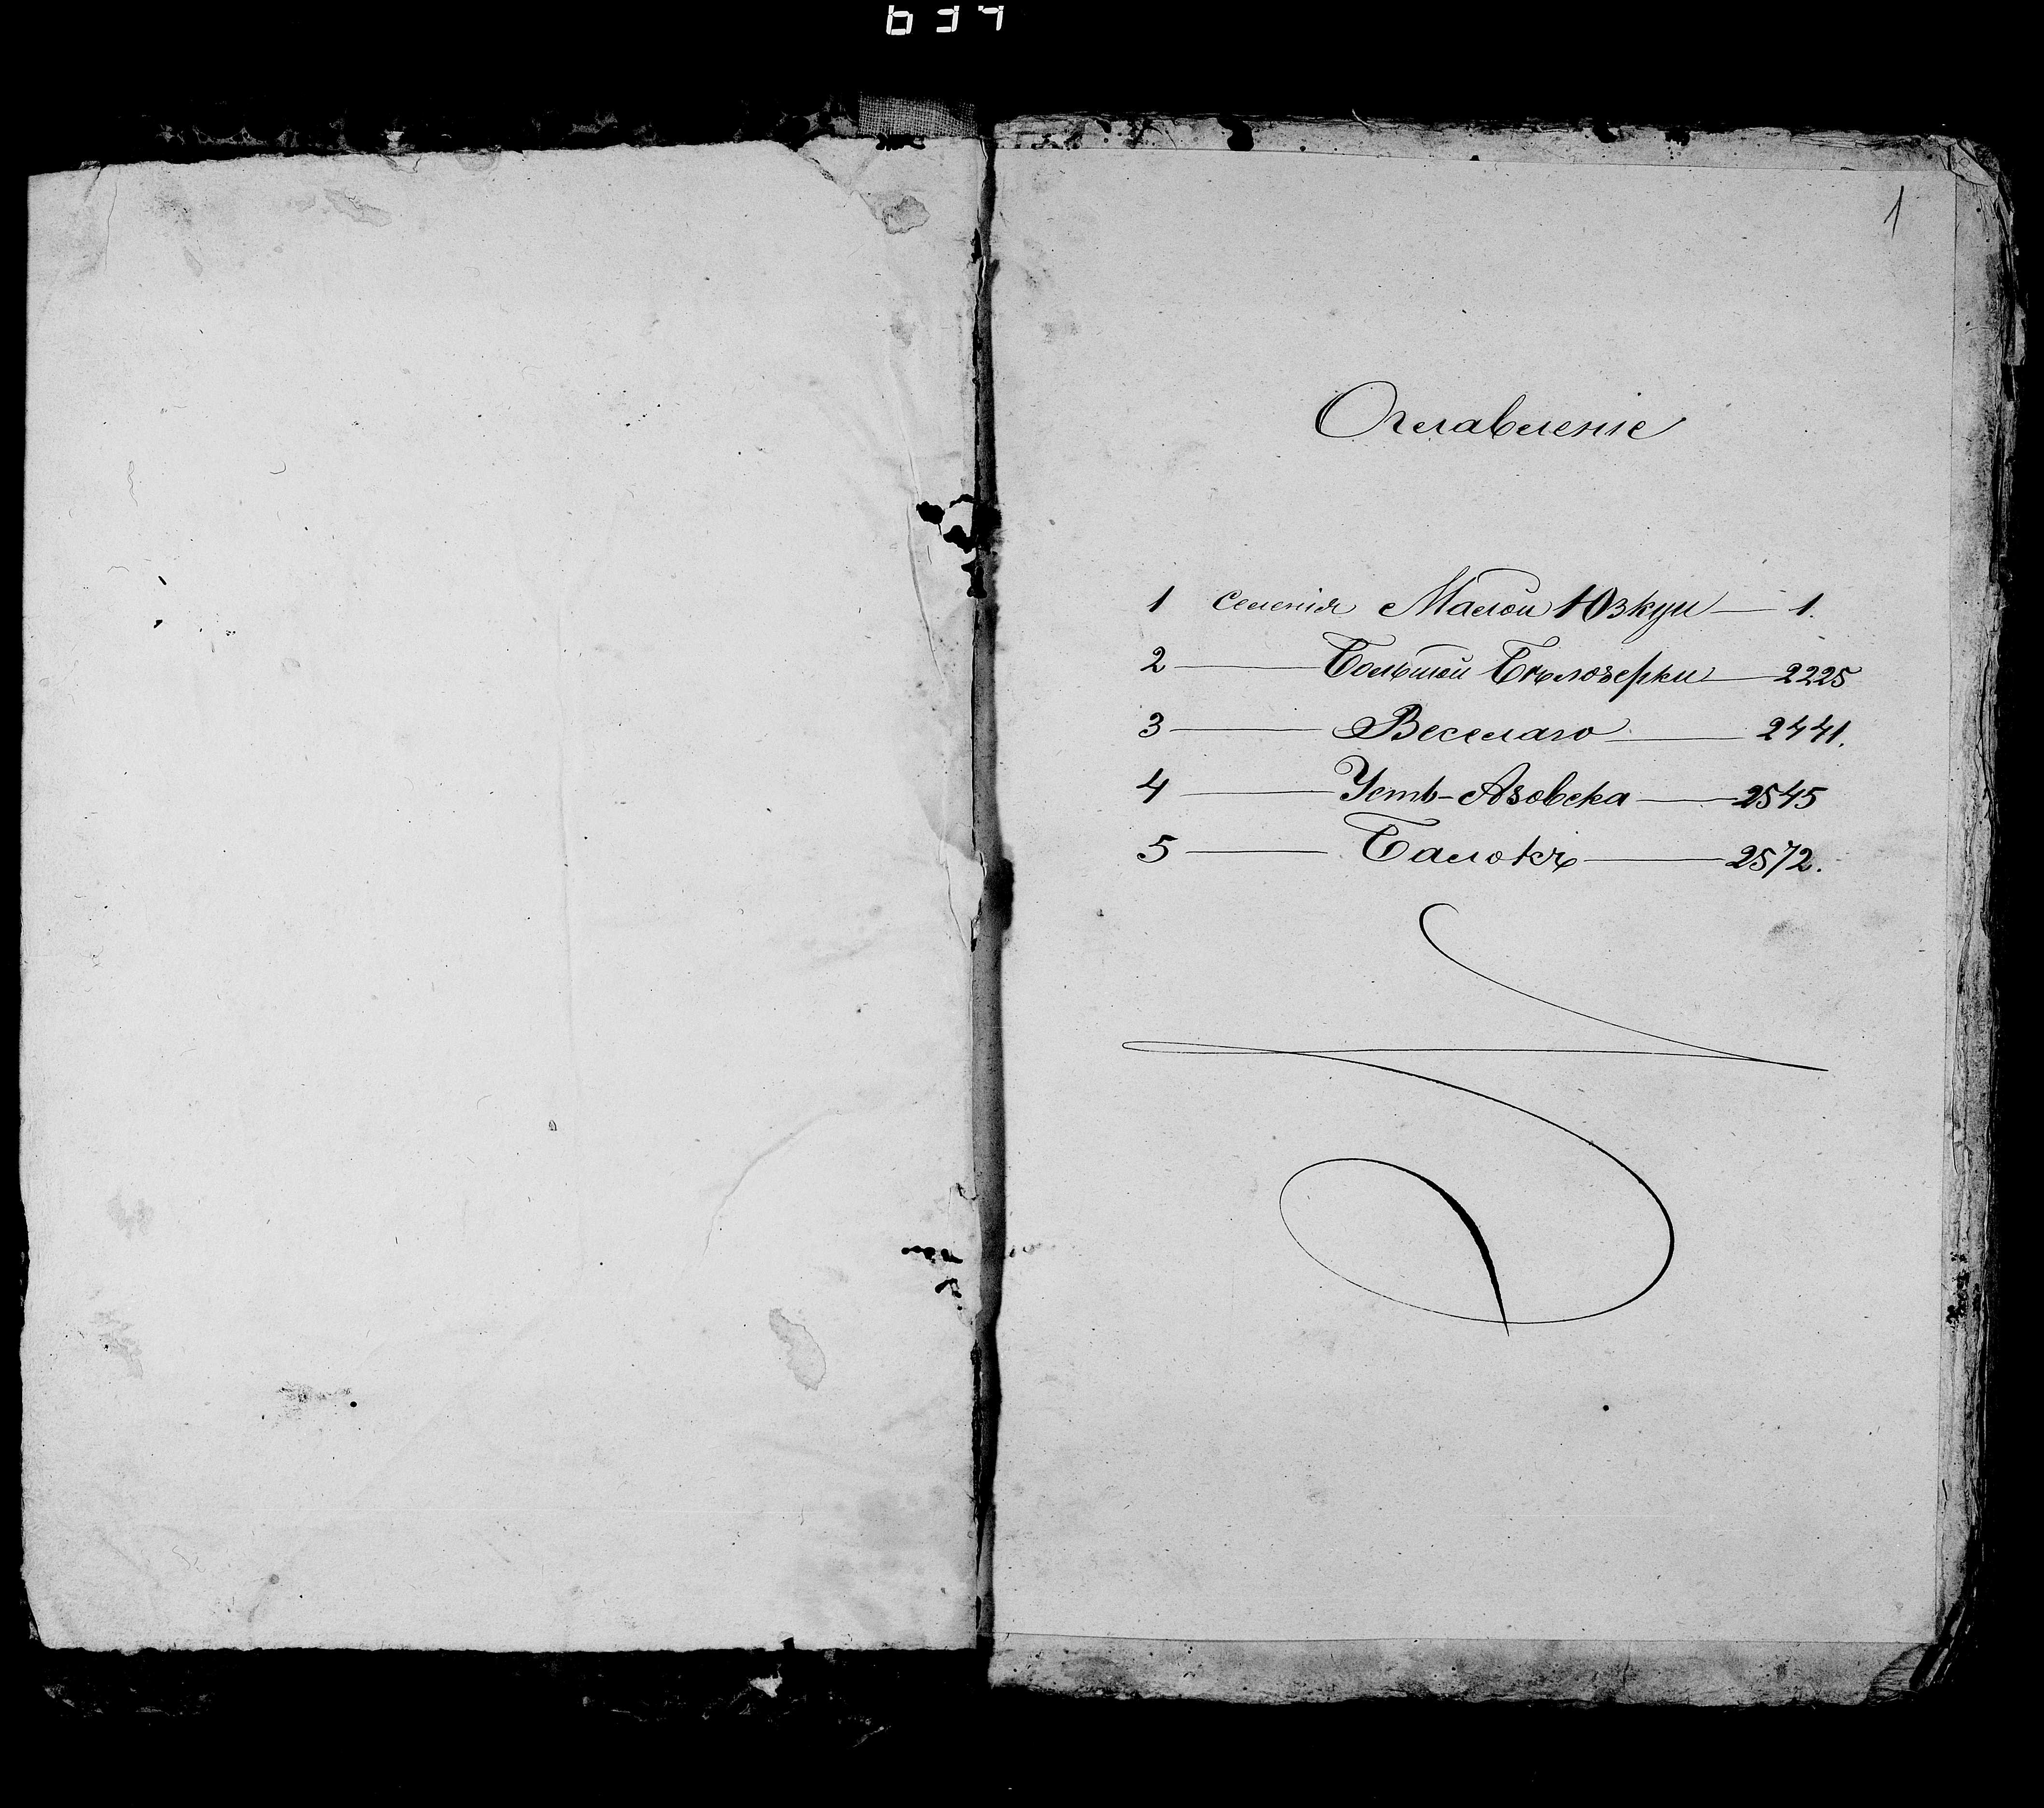 1
Оглавленіе
1 Селенія Малой Юзкуи — 1.
2 — Большой Бѣлозерки — 2225
3 — Веселаго — 2441.
4 — Усть-Азовска — 2545
5 — Балокъ — 2572.